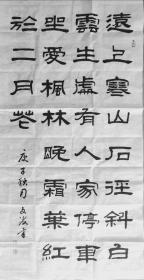 遠上寒山石徑斜白
雲生處有人家停車
坐愛楓林晚霜葉紅
於二月花
庚子秋月